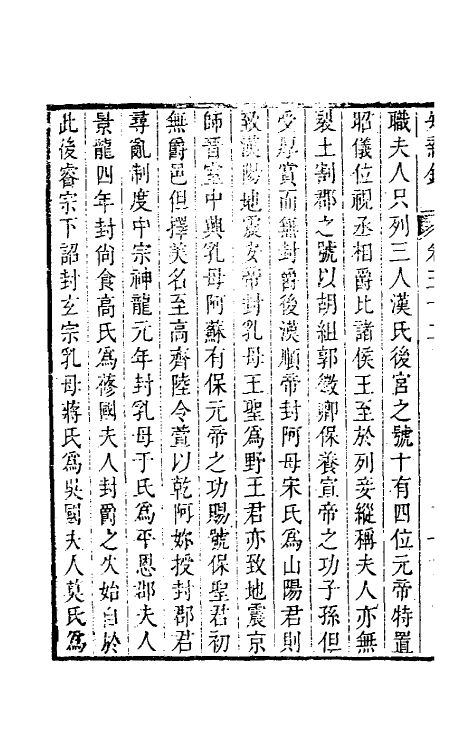 職夫人只列三人漢氏後宮之號十有四位元帝特置
昭儀位視丞相爵比諸侯王至於列妾縱稱夫人亦無
裂土割郡之號以胡組郭徵卿保養宣帝之功子孫但
受厚賞而無封爵後漢順帝封阿母宋氏爲山陽君則
致漢陽地震安帝封乳母王聖爲野王君亦致地震京
師晉室中興乳母阿蘇有保元帝之功賜號保聖君初
無爵邑但擇美名至高齊陸令萱以乾阿妳授封郡君
尋亂制度中宗神龍元年封乳母于氏爲平恩郡夫人
景龍四年封尙食高氏爲蓚國夫人封爵之失始自於
此後睿宗下詔封玄宗乳母蔣氏爲吳國夫人莫氏爲